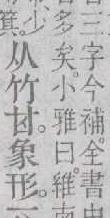 三字今補。全書中
多矣。小雅曰。維南
从竹甘象形。
箕。